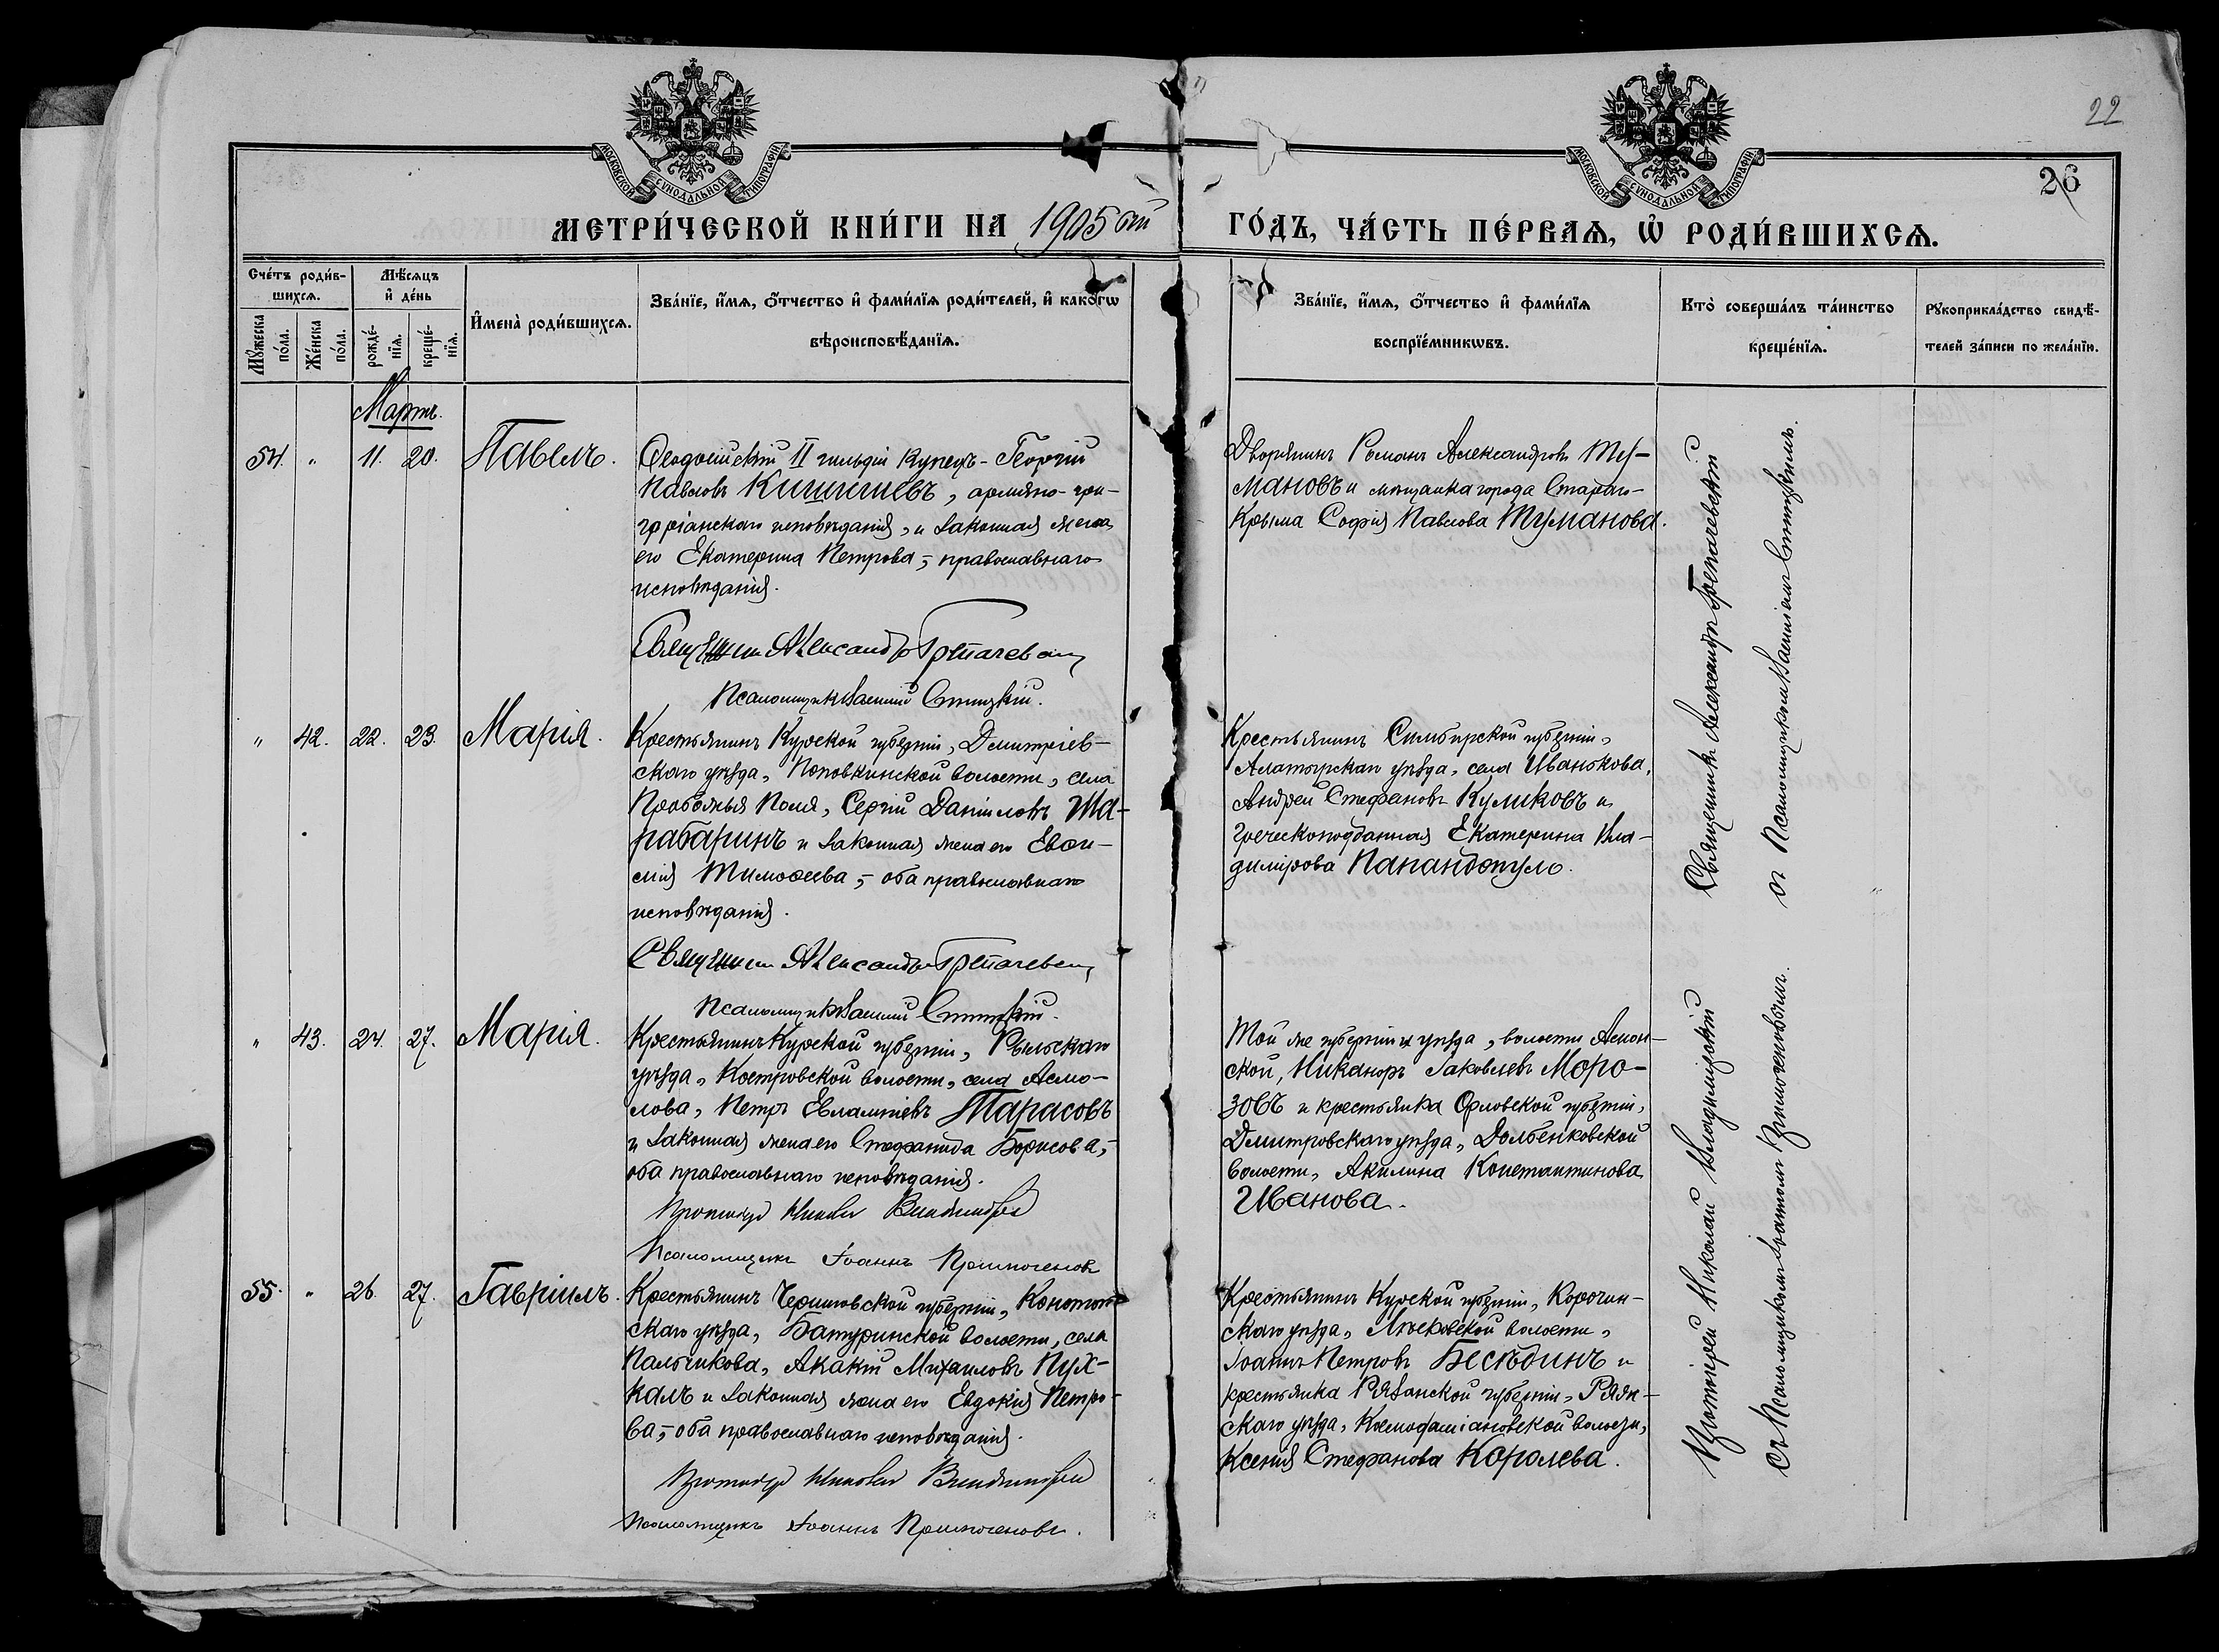 22
26
МОСКОВСКОЙ СѴНОДАЛЬНОЙ ТИПОГРАФІИ
МОСКОВСКОЙ СѴНОДАЛЬНОЙ ТИПОГРАФІИ
МЕТРИ́ЧЕСКОЙ КНИ́ГИ НА 1905 ый ГО́ДЪ, ЧА́СТЬ ПЕ́РВАѦ, Ѡ҆ РОДИ́ВШИХСѦ.
Сче́тъ роди́в-
шихсѧ.
Мѣ́сѧцъ
и҆ де́нь
Мꙋ́жеска
по́ла.
Же́нска
по́ла.
рожде́-
нїѧ.
креще́-
нїѧ.
И҆мена̀ роди́вшихсѧ.
Зва́нїе, и҆́мѧ, ѻ҆́тчество и҆ фами́лїѧ роди́телей, и҆ како́гѡ
вѣроисповѣ́данїѧ.
Зва́нїе, и҆́мѧ, ѻ҆́тчество и҆ фами́лїѧ
воспрїе́мникѡвъ.
Кто̀ соверша́лъ та́инство
креще́нїѧ.
Рꙋкоприкла́дство свидѣ́-
телей за́писи по жела́нїю.
Мартъ.
54. " 11. 20. Павелъ.
Ѳеодосійскій II гильдіи купецъ - Георгій
Павловъ Кишишіевъ, армяно-гри-
горіанскаго исповѣданія, и законная жена
его Екатерина Петрова, - православнаго
исповѣданія.
Священникъ Александръ
Псаломщикъ Василій
Дворянинъ Романъ Александровъ Ту-
мановъ и мѣщанка города Стараго-
Крыма Софія Павлова Туманова.
" 42. 22. 23. Марія.
Крестьянинъ Курской губерніи, Дмитріев-
скаго уѣзда, Поповкинской волости, села
Поля, Сергій Даніиловъ Ша-
рабаринъ и законная жена его Евѳи-
мія Тимоѳеева, - оба православнаго
исповѣданія.
Священникъ Александръ
Псаломщикъ Василій
Крестьянинъ Симбирской губерніи,
Алатырскаго уѣзда, села Иванькова,
Андрей Стефановъ Куликовъ и
греческоподданная Екатерина Вла-
димірова Папандопуло.
" 43. 24. 27. Марія.
Крестьянинъ Курской губерніи, Рыльскаго
уѣзда, Костровской волости, села Асмо-
лова, Петръ Евлампіевъ Тарасовъ
и законная жена его Стефанида Борисова, -
оба православнаго исповѣданія.
Протоіерей Николай Владимірскій
Псаломщикъ Іоаннъ
Той же губерніи и уѣзда, волости Асмон-
ской, Никаноръ Іаковлевъ Моро-
зовъ и крестьянка Орловской губерніи,
Дмитровскаго уѣзда, Долбенковской
волости, Акилина Константинова
Иванова.
55. " 26. 27. Гавріилъ.
Крестьянинъ Черниговской губерніи, Конотоп-
скаго уѣзда, Батуринской волости, села
Пальчикова, Акакій Михаиловъ Пух-
калъ и законная жена его Евдокія Петро-
ва, - оба православнаго исповѣданія.
Протоіерей Николай Владимірскій
Псаломщикъ Іоаннъ
Крестьянинъ Курской губерніи, Корочан-
скаго уѣзда, волости,
Іоаннъ Петровъ Бесѣдинъ и
крестьянка Рязанской губерніи, Ряж-
скаго уѣзда, волости,
Ксенія Стефанова Королева.
Священникъ Александръ
съ Псаломщикомъ Василіемъ
Протоіерей Николай Владимірскій
съ Псаломщикомъ Іоанномъ